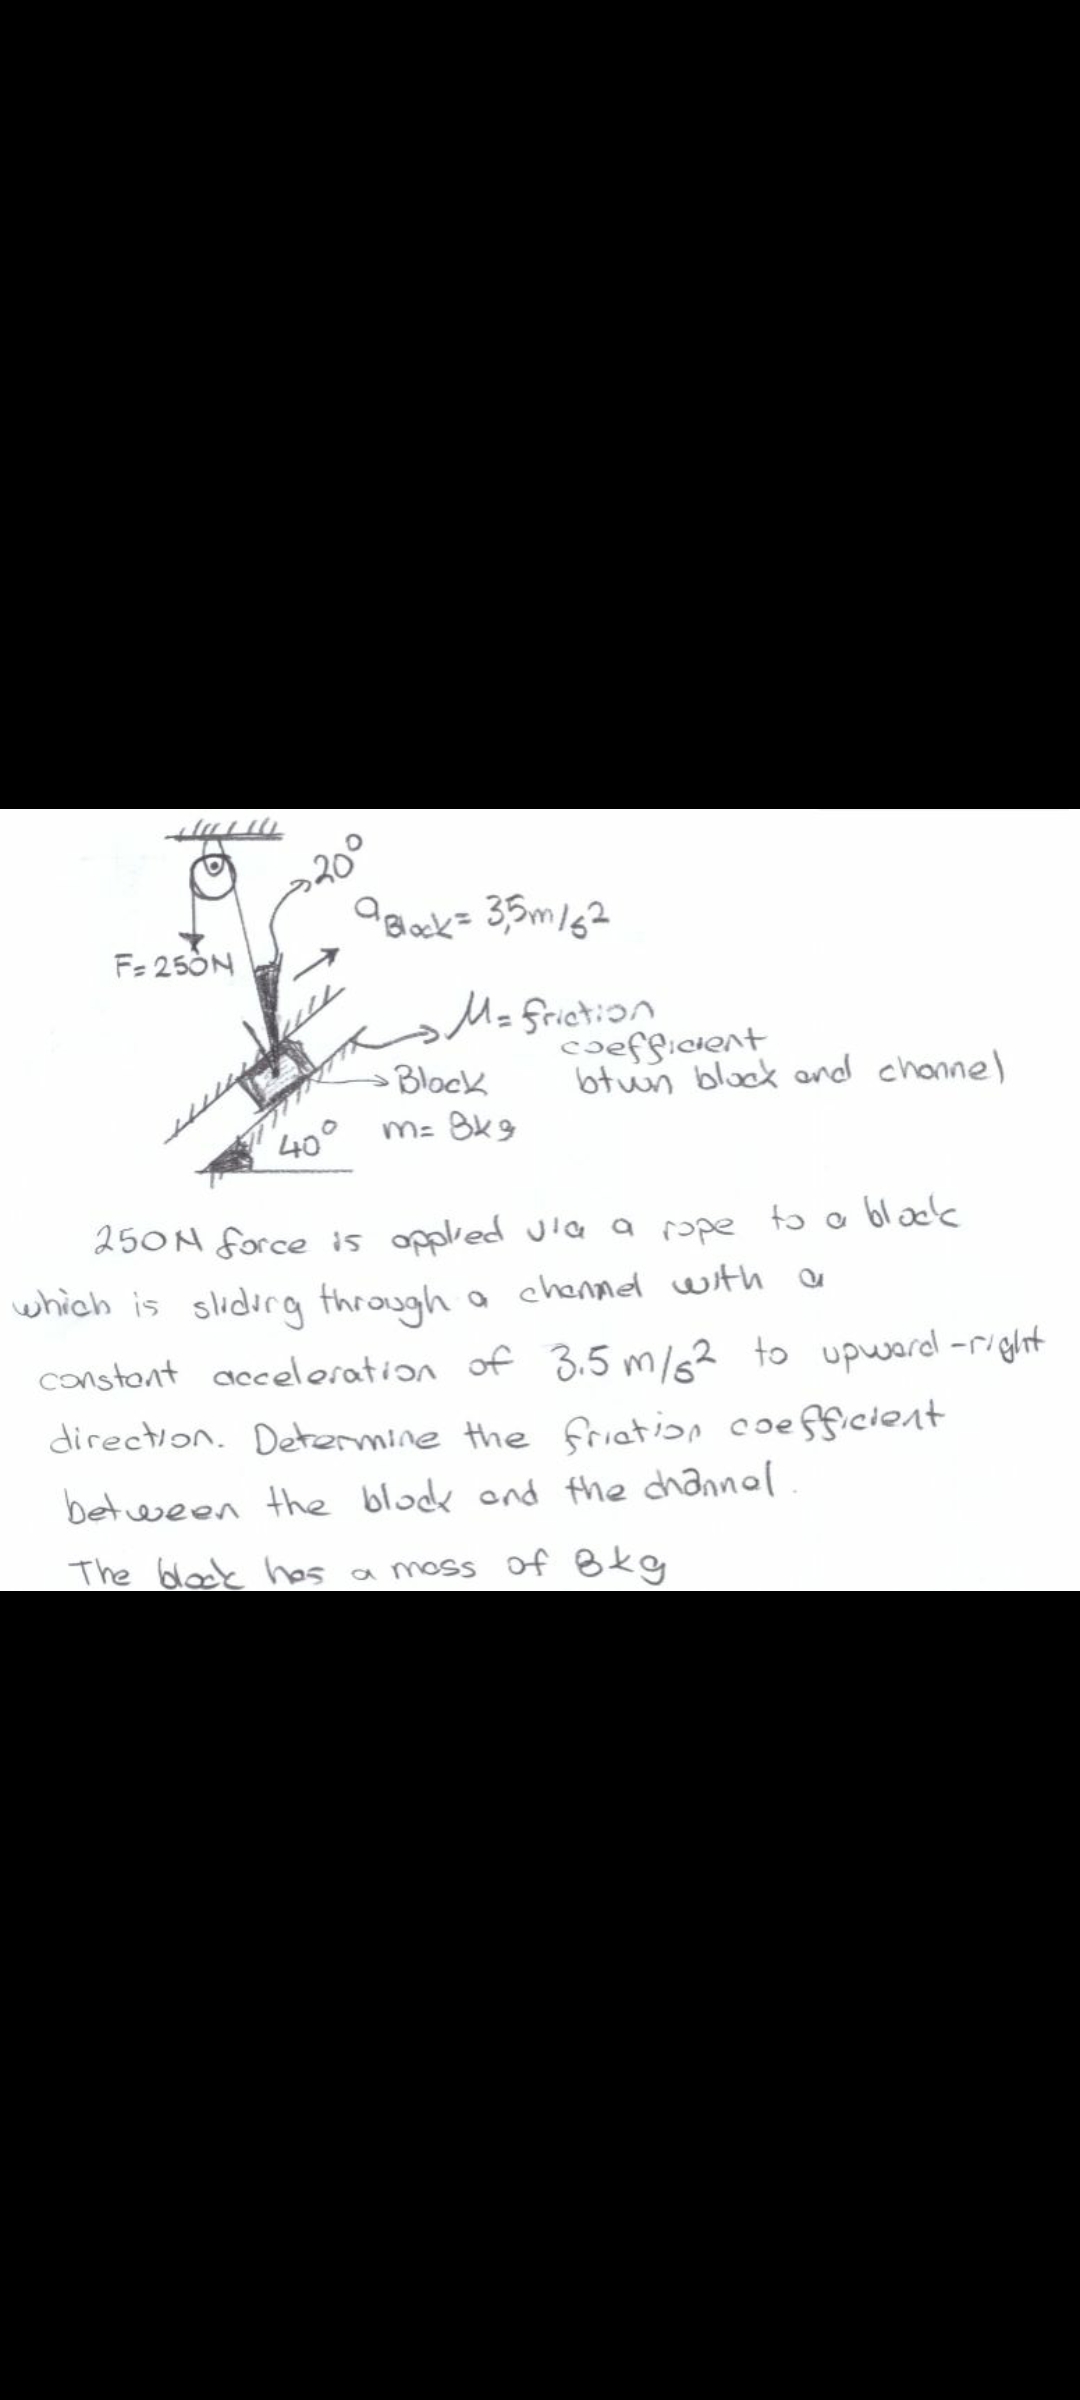 20°
a Block = 3,5m/s2
F=250N
μ= friction
coefficient
btwn block and channel
Block
m= 8kg
40°
250N force is applied via a rope to a block
which is sliding through a channel with a
constant acceleration of 3.5 m/s2 to upward-right
direction. Determine the friction coefficient
between the block and the channel.
The block has a mass of 8kg